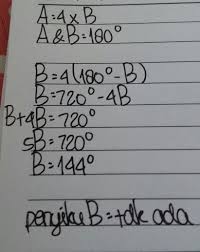 A=4xB
A&B=180°
B=4(180°-B)
B=720°-4B
B+4B=720°
5B=720°
B=144°
penyiku B=tdk ada